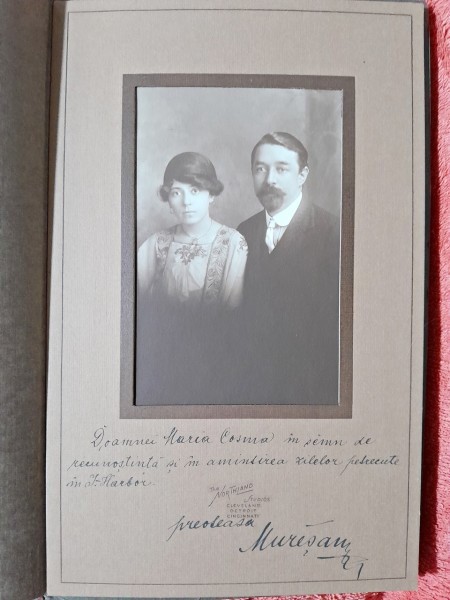 Doamnei Maria Cosma în semn de
recunoștință și în amintirea zilelor petrecute
în I. Harbor.
THE
NORTHLAND
STUDIOS
CLEVELAND
DETROIT
CINCINNATI
preoteasa
Mureșan